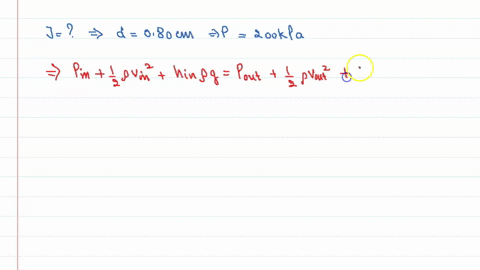 J = ? ⇒ d = 0.80cm ⇒ P = 200kPa
⇒ Pin + 1/2 ρvin² + hinρg = Pout + 1/2 ρvout² +